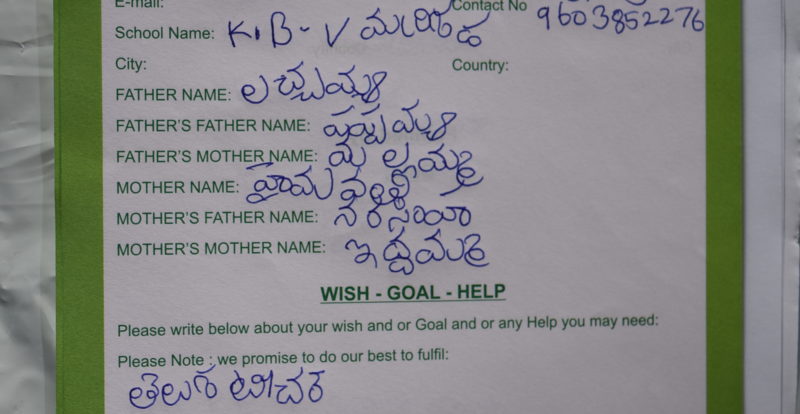 E-mail:
Contact No 9603852276
School Name: K.B-V మలహర
City: Country:
FATHER NAME: లచ్చయ్య
FATHER'S FATHER NAME: పప్పయ్య
FATHER'S MOTHER NAME: మల్లమ్మ
MOTHER NAME: హైమవతి
MOTHER'S FATHER NAME: నరసయ్య
MOTHER'S MOTHER NAME: ఇద్దమ్మ
WISH - GOAL - HELP
Please write below about your wish and or Goal and or any Help you may need:
Please Note : we promise to do our best to fulfil:
తెలుగు టీచర్